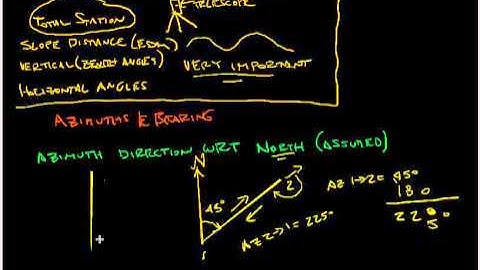 TELESCOPE
TOTAL STATION
SLOPE DISTANCE (EDM)
VERTICAL (ZENITH ANGLES) VERY IMPORTANT
HORIZONTAL ANGLES
AZIMUTHS & BEARING
AZIMUTH DIRECTION WRT NORTH (ASSUMED)
N
2
45°
1
AZ 1→2 = 45°
180
225°
AZ 2→1 = 225°